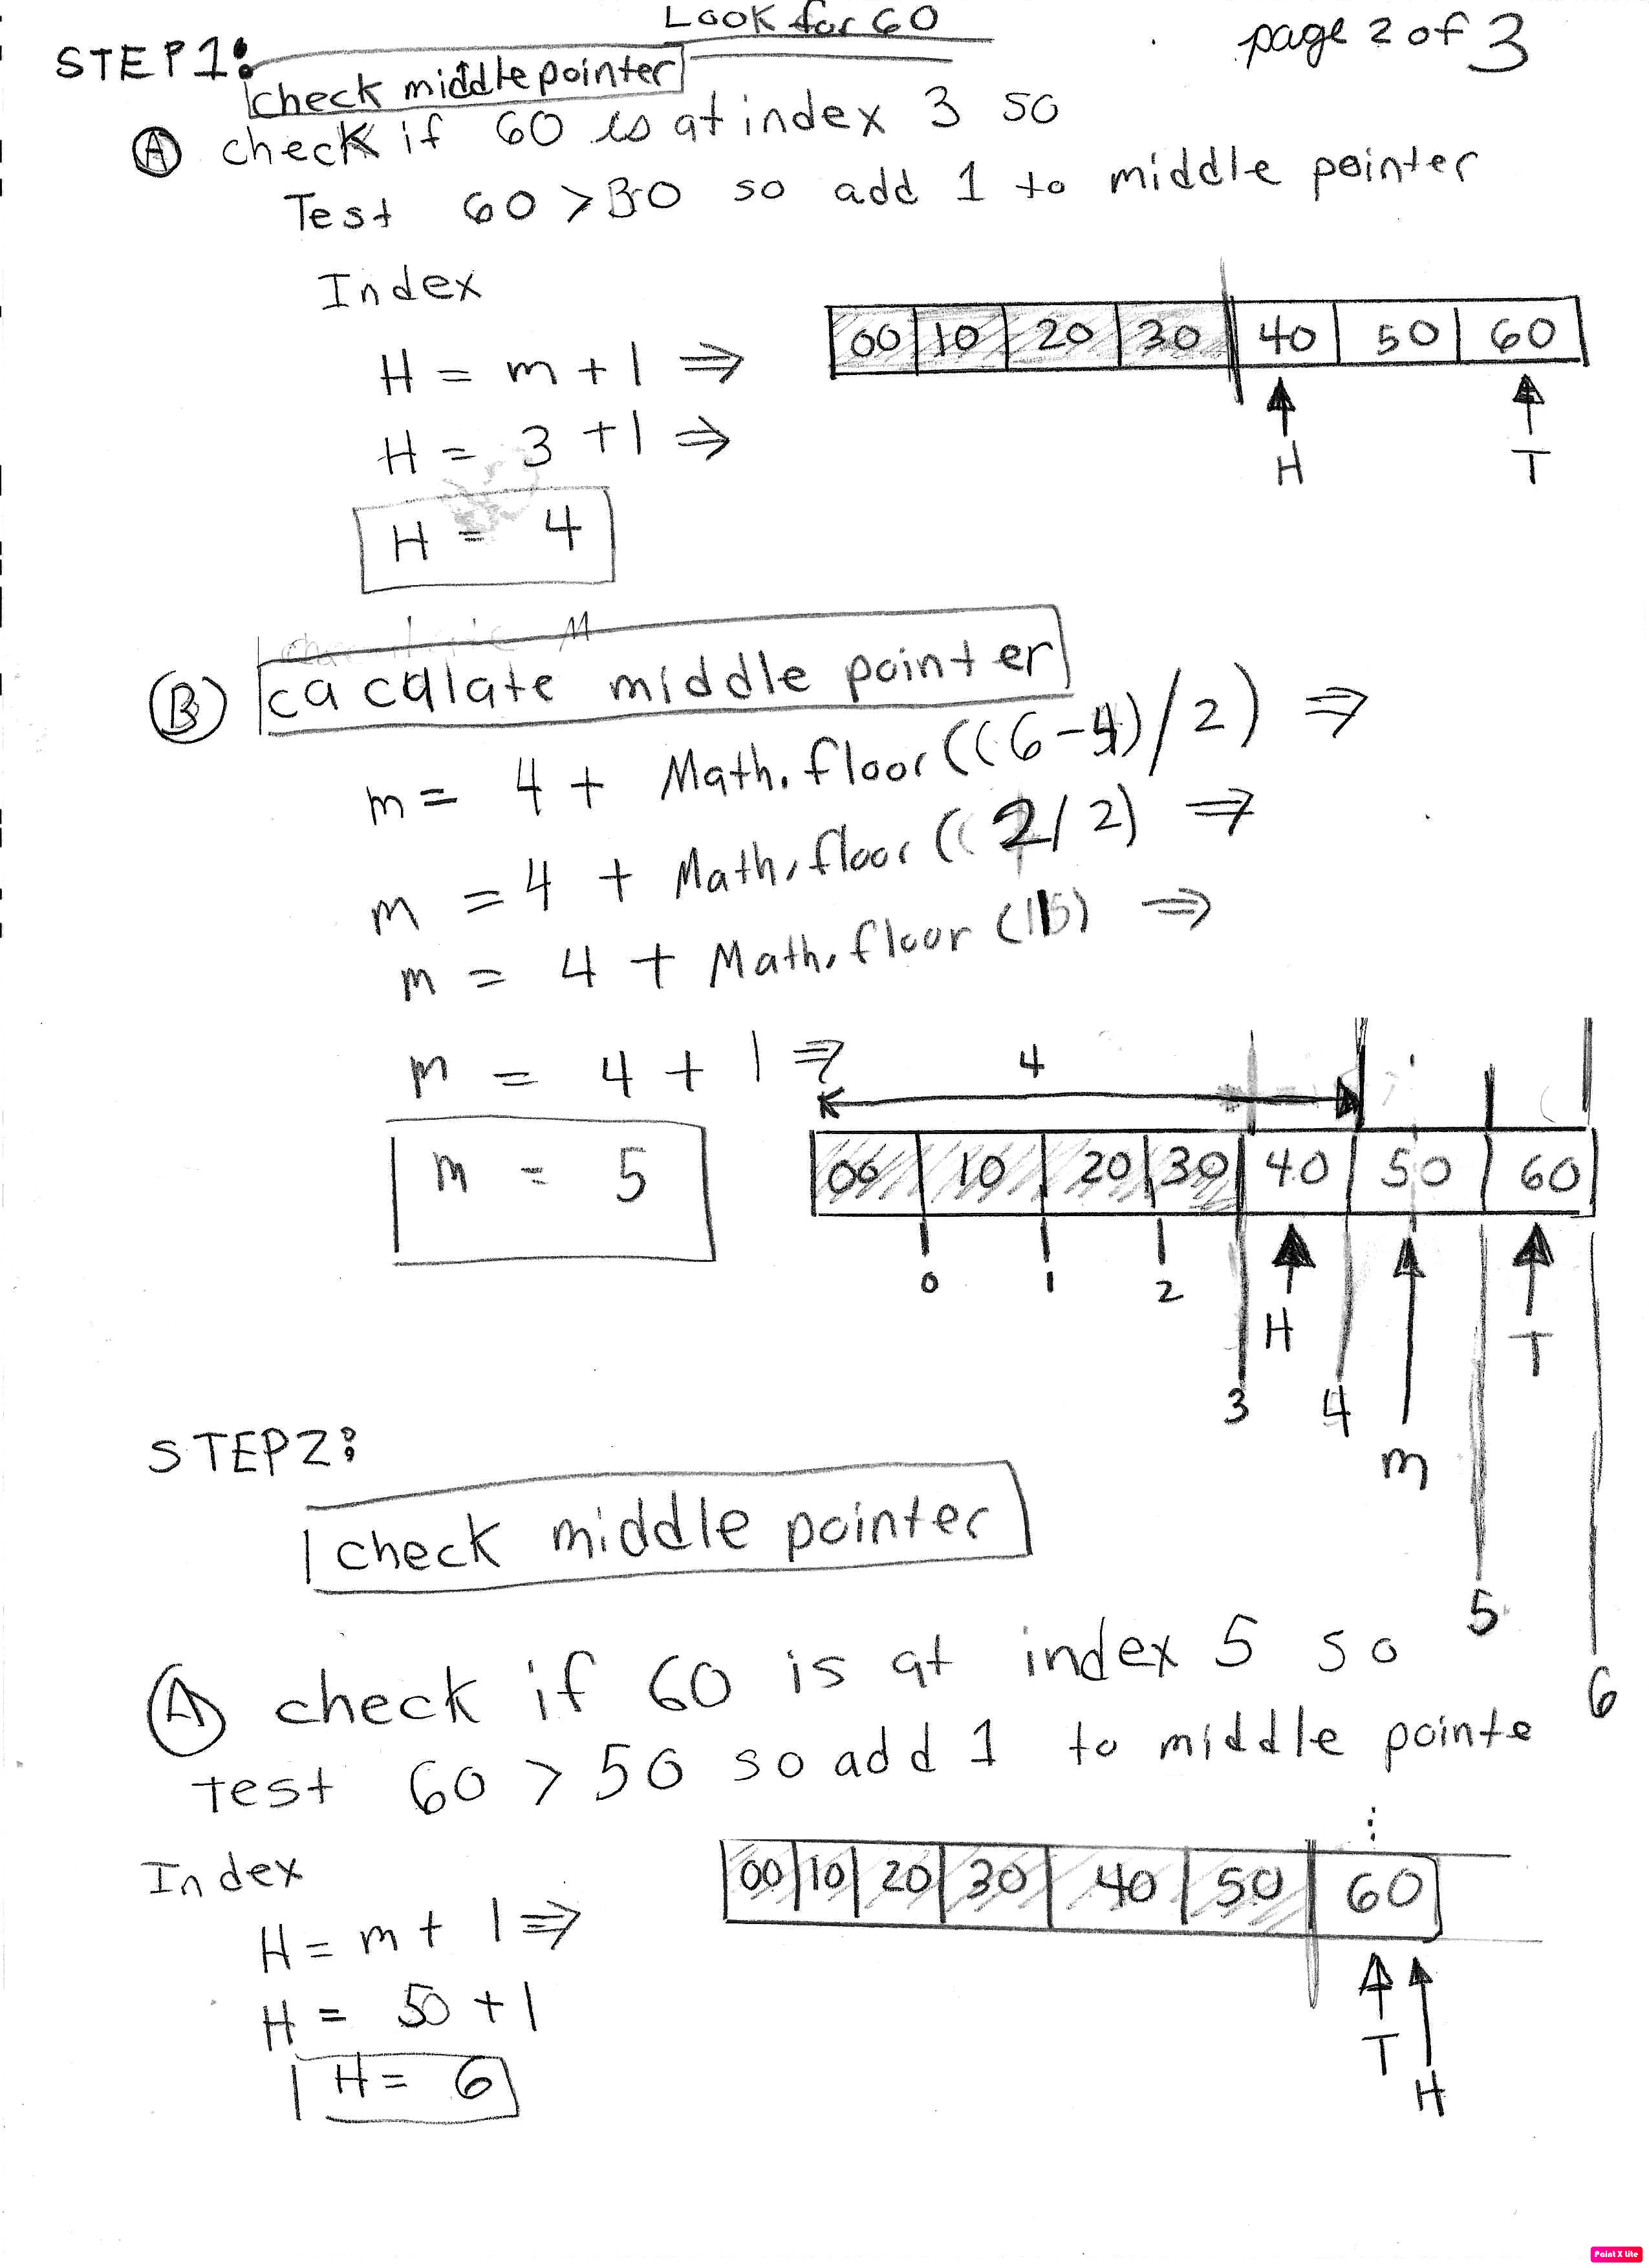 Look for 60
page 2 of 3
STEP1:
check middle pointer
A check if 60 is at index 3 so
Test 60 > 30 so add 1 to middle pointer
Index
H = m + 1 ⇒
H = 3 + 1 ⇒
H = 4
00 10 20 30 40 50 60
H T
B cacalate middle pointer
m = 4 + Math.floor((6-4)/2) ⇒
m = 4 + Math.floor((2/2) ⇒
m = 4 + Math.floor( ) ⇒
m = 4 + 1 ⇒
m = 5
4
00 10 20 30 40 50 60
0 1 2
H T
3 4
m
5
6
STEP2:
check middle pointer
A check if 60 is at index 5 so
Test 60 > 50 so add 1 to middle pointe
Index
H = m + 1 ⇒
H = 50 + 1
H = 6
00 10 20 30 40 50 60
T
H
Paint X Lite